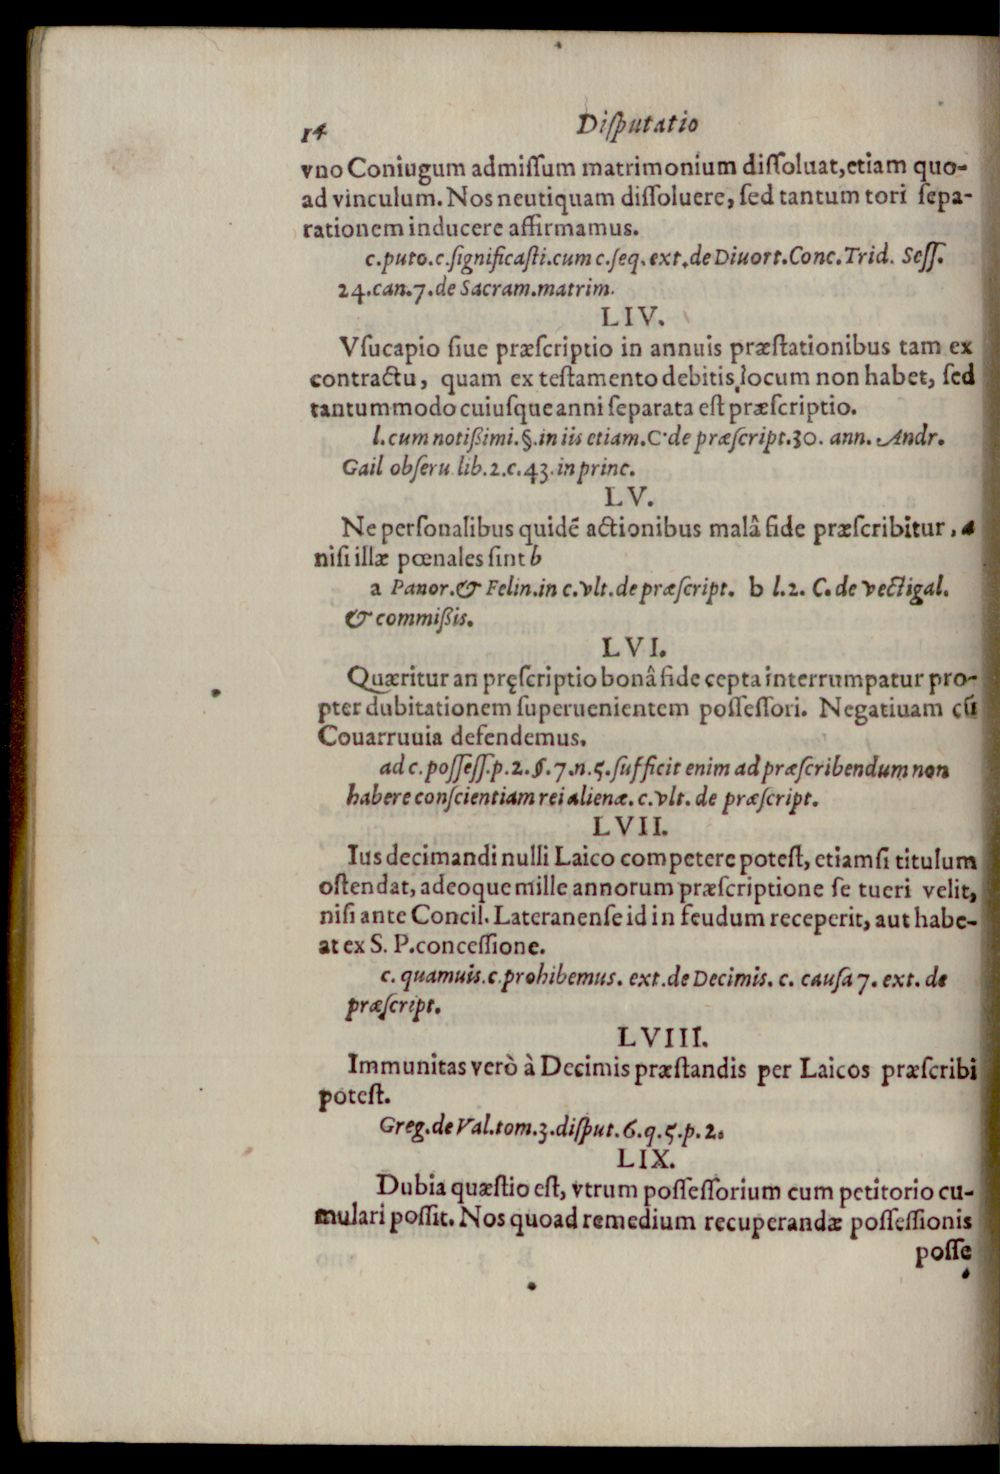 14 Disputatio
vno Coniugum admissum matrimonium dissoluat, etiam quo-
ad vinculum. Nos neutiquam dissoluere, sed tantum tori sepa-
rationem inducere affirmamus.
c. puto. c. significasti. cum c. seq. ext. de Diuort. Conc. Trid. Sess.
24. can. 7. de Sacram. matrim.
LIV.
Vsucapio siue præscriptio in annuis præstationibus tam ex
contractu, quam ex testamento debitis, locum non habet, sed
tantummodo cuiusque anni separata est præscriptio.
l. cum notißimi. §. in iis etiam. C. de præscript. 30. ann. Andr.
Gail obseru lib. 2. c. 43. in princ.
LV.
Ne personalibus quidē actionibus malâ fide præscribitur, a
nisi illæ pœnales sint b
a Panor. & Felin. in c. vlt. de præscript. b l. 2. C. de vectigal.
& commißis.
LVI.
Quæritur an pręscriptio bonâ fide cepta interrumpatur pro-
pter dubitationem superuenientem possessori. Negatiuam cū
Couarruuia defendemus.
ad c. possess. p. 2. §. 7. n. 5. sufficit enim ad præscribendum non
habere conscientiam rei alienæ. c. vlt. de præscript.
LVII.
Ius decimandi nulli Laico competere potest, etiamsi titulum
ostendat, adeoque mille annorum præscriptione se tueri velit,
nisi ante Concil. Lateranense id in feudum receperit, aut habe-
at ex S. P. concessione.
c. quamuis. c. prohibemus. ext. de Decimis. c. causa 7. ext. de
præscript.
LVIII.
Immunitas verò à Decimis præstandis per Laicos præscribi
potest.
Greg. de Val. tom. 3. disput. 6. q. 5. p. 2.
LIX.
Dubia quæstio est, vtrum possessorium cum petitorio cu-
mulari possit. Nos quoad remedium recuperandæ possessionis
posse